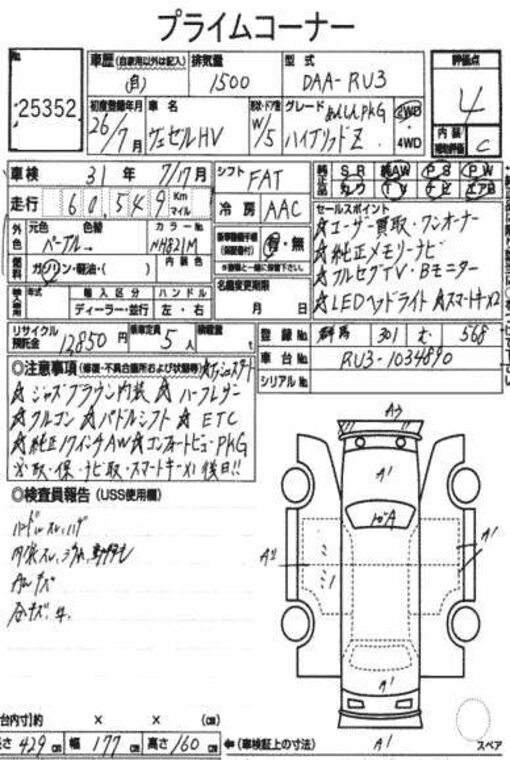 プライムコーナー
No
25352
車歴 (自家用以外は記入) 排気量 型式 評価点
(自) 1500 DAA-RU3 4
初度登録年月 車名 形状・ドア数 グレード あんしんPKG 2WD・4WD 内装補助評価
26年/7月 ヴェゼルHV W/5 ハイブリッドZ C
車検 31年 7/17月 シフト FAT
SR 純AW PS PW
カワ TV ナビ エアB
走行 60,549 Km マイル 冷房 AAC
セールスポイント
外色 元色 色替 カラーNo
パープル→ NH821M
燃料 ガソリン・軽油・( ) 内装色
新車整備手帳(保証書付) 有・無
※整備と一緒に保管下さい。
★ユーザー買取・ワンオーナー
★純正メモリーナビ
★フルセグTV・Bモニター
★LEDヘッドライト ★スマートキーX2
輸入車用 年式 輸入区分 ハンドル 名義変更期限
ディーラー・並行 左・右 月 日
リサイクル預託金 12850円 乗車定員 5人 積載量
登録No 群馬 301 む 568
車台No RU3-1034890
シリアルNo
◎注意事項 (修復・不具合箇所および状態等) ★プッシュスタート
★ジャズブラウン内装 ★ハーフレザー
★クルコン ★パドルシフト ★ETC
★純正17インチAW ★コンフォートビューPKG
※取・保・ナビ取・スマートキーX1 後日!!
◎検査員報告 (USS使用欄)
ハンドルスレ、ハゲ
AWキズ
A3
A1
A2
A1
A1
A1
台内寸)約 × × (cm)
長さ 429 cm 幅 177 cm 高さ 160 cm ←(車検証上の寸法) スペア